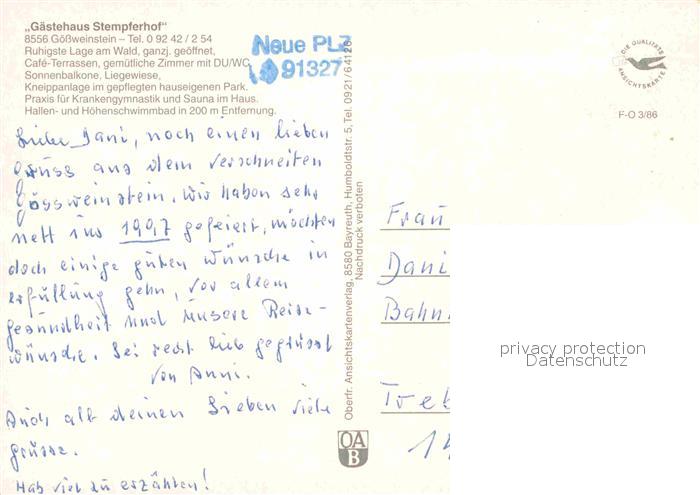 „Gästehaus Stempferhof"
8556 Gößweinstein – Tel. 0 92 42 / 2 54
Ruhigste Lage am Wald, ganzj. geöffnet,
Café-Terrassen, gemütliche Zimmer mit DU/WC,
Sonnenbalkone, Liegewiese,
Kneippanlage im gepflegten hauseigenen Park.
Praxis für Krankengymnastik und Sauna im Haus.
Hallen- und Höhenschwimmbad in 200 m Entfernung.
Neue PLZ
91327
Liebe Dani, noch einen lieben
Gruss aus dem verschneiten
Gössweinstein. wir haben sehr
nett ins 1997 gefeiert, möchten
doch einige guten wünsche in
erfüllung gehn, vor allem
gesundheit und unsere Reise-
wünsche. Sei recht lieb gegrüsst
von Anni.
Auch all deinen Lieben viele
grüsse.
Hab viel zu erzählen!
Oberfr. Ansichtskartenverlag, 8580 Bayreuth, Humboldtstr. 5, Tel. 0921/64126
Nachdruck verboten
OA
B
DIE QUALITÄTS
ANSICHTSKARTE
F-O 3/86
Frau
Dani
Bahn
Treb
14
privacy protection
Datenschutz